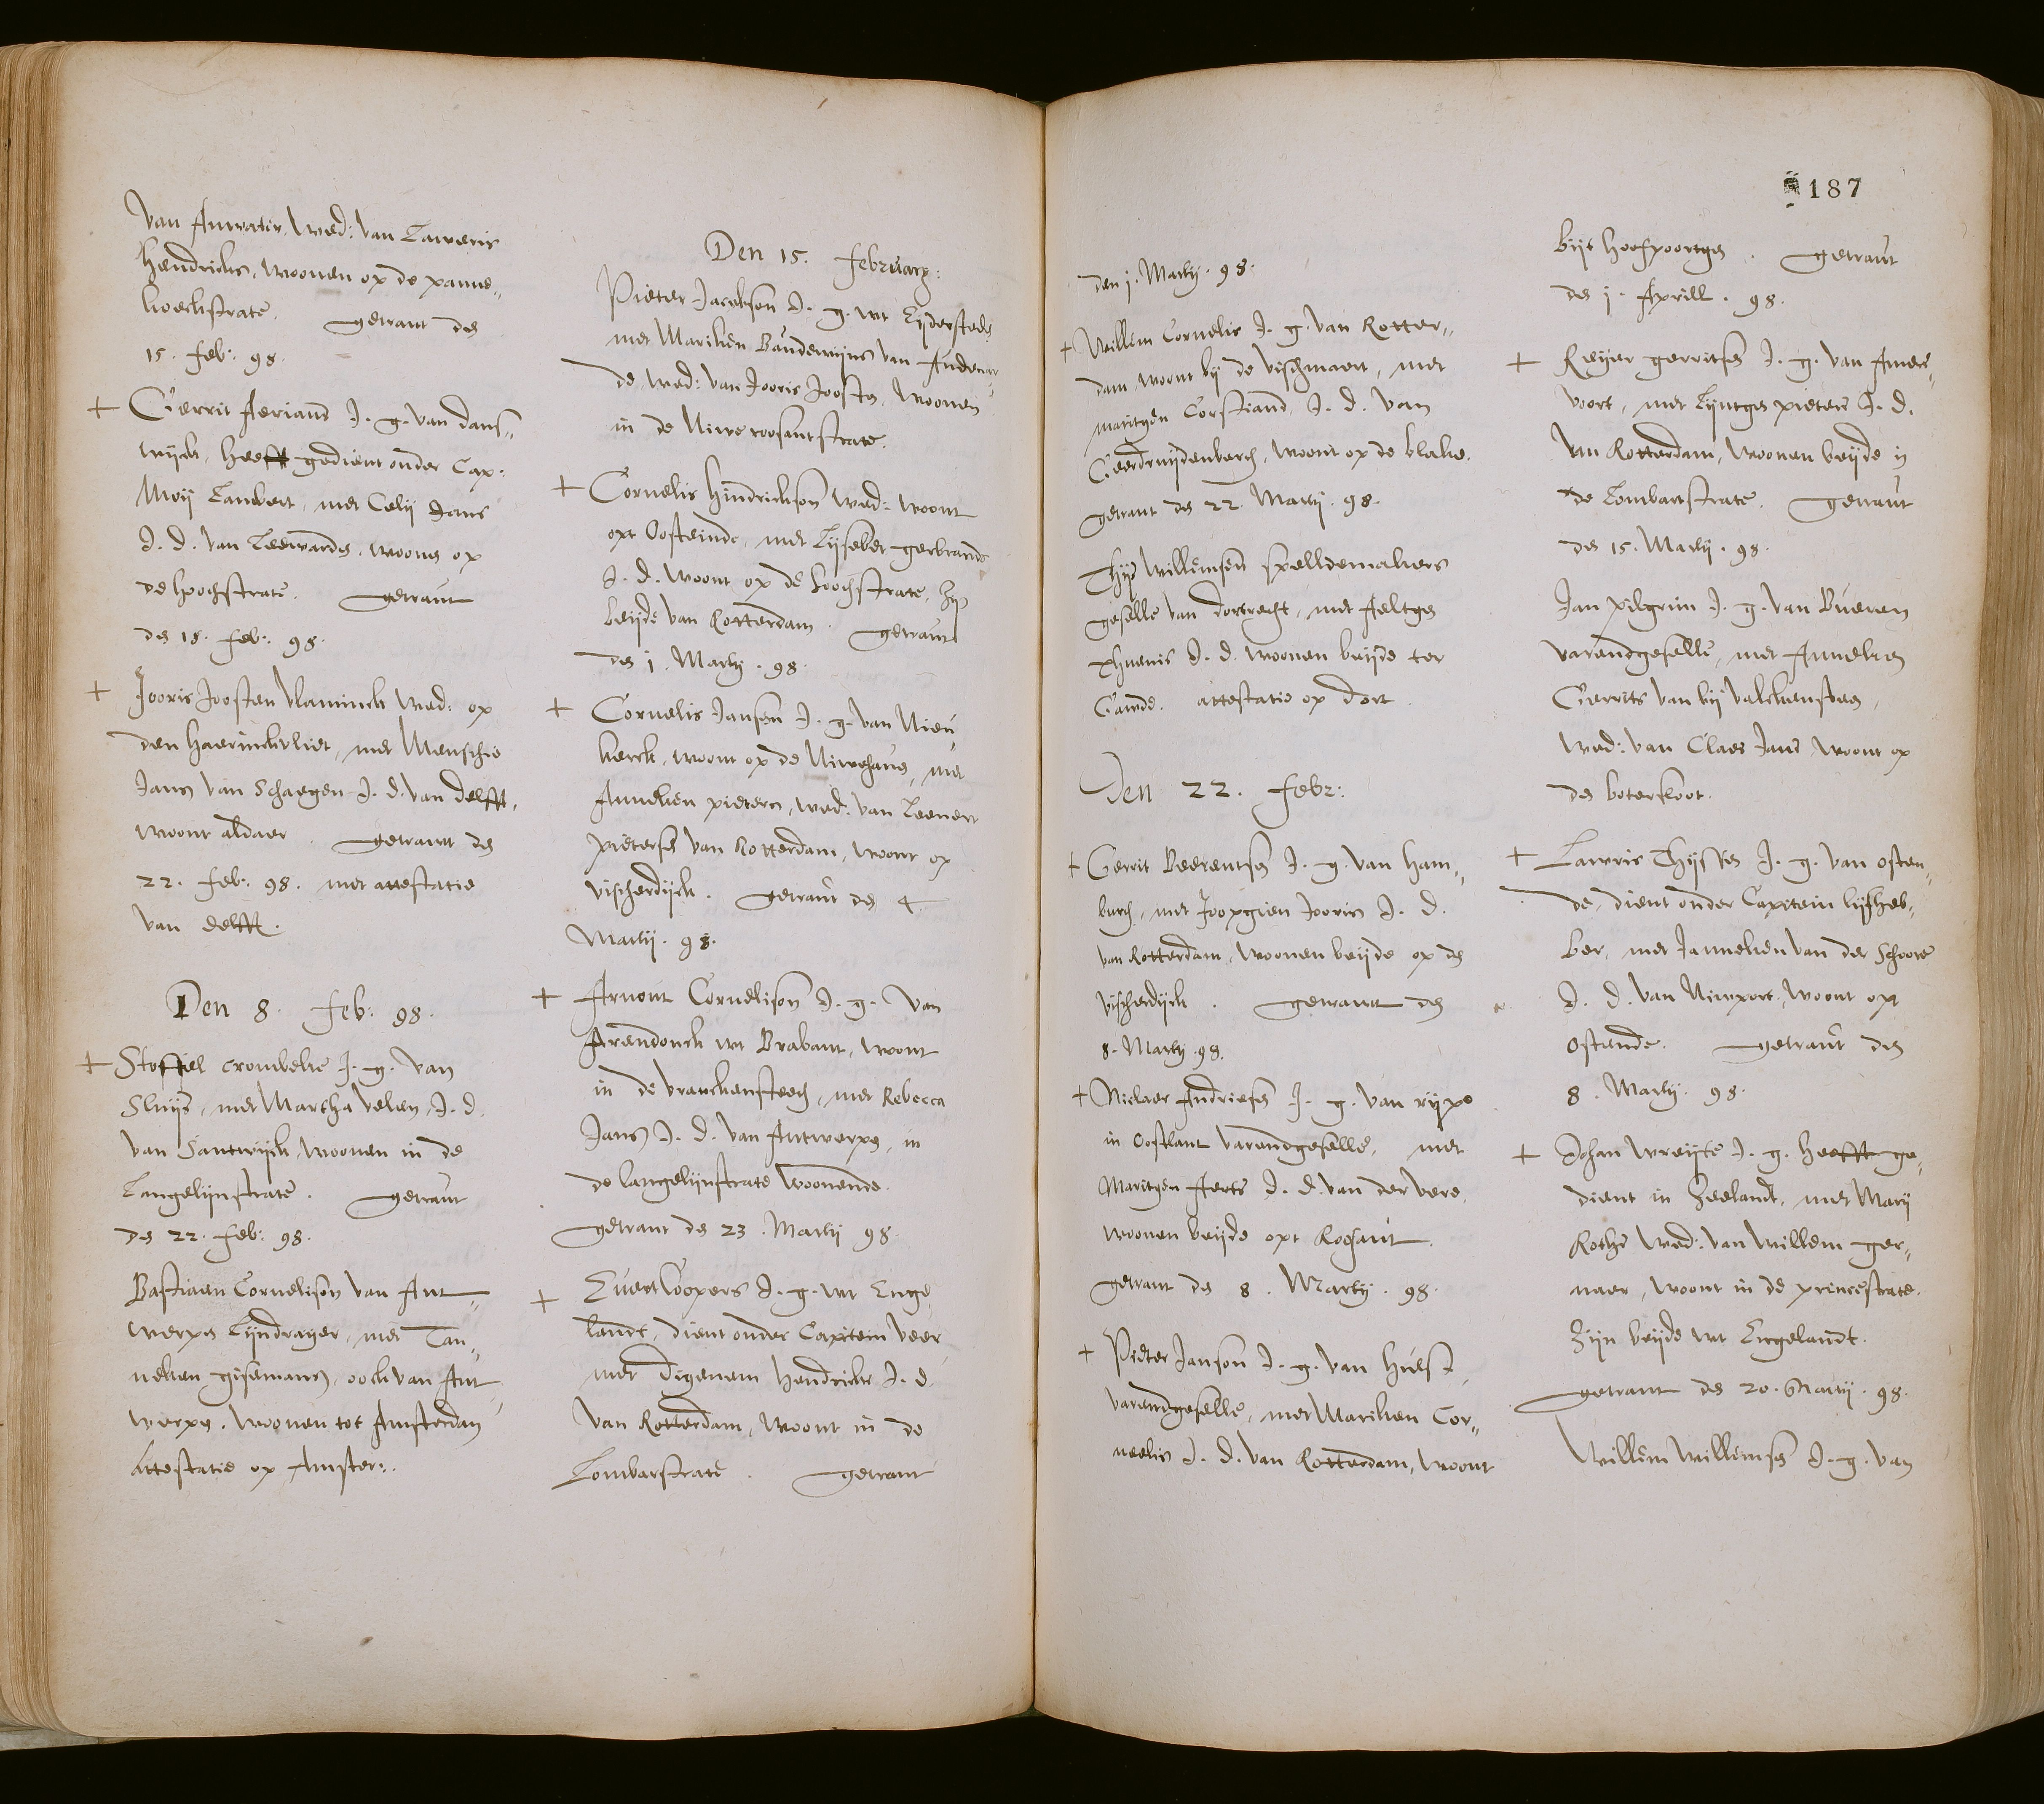 van Antwerpen, Wed: van Laweris
Hendricks, woonen op de panne„
hoeckstrate. getraut den
15. feb: 98.
+ Gerrit Aerians J. g. van dans„
wijck, heefft gedient onder Cap:
Moij Lambert, met Celij Jans
J. d. van Leewarden, woonen op
de hoochstrate. getraut
den 18. feb: 98.
+ Jooris Joosten Vlaminck Wed: op
den Haerinckvliet, met Menschie
Jans van Schaegen J. d. van delfft,
woont aldaer. getraut den
22. feb: 98. met attestatie
van delfft.
Den 8. feb: 98.
+ Stoffel crombelie J. g. van
Sluijs, met Martha velen J. d.
van Santwijck, woonen in de
Langelijnstrate. getraut
den 22. feb: 98.
Bastiaen Cornelison van Ant„
werpen Lijndrayer, met Tan„
neken gisemans, oock van Ant„
werpen, woonen tot Amsterdam
Attestatie op Amster:.
Den 15. february:
Pieter Jacobson J. g. wt Eijdersteds
met Mariken Baudewijns van Audenar„
de, Wed: van Jooris Joosten, woonen
in de Niwe roosantstrate.
+ Cornelis Hindrickson Wed: woont
opt Oosteinde, met Lijsebet gerbrands
J. d. woont op de hoochstrate, zijn
beijde van Rotterdam. getraut
den 1. Martij. 98.
+ Cornelis Jansen J. g. van Nieu„
kerck, woont op de Niwehaven, met
Anneken pieters, Wed: van Leenert
pietersen van Rotterdam, woont op
vischerdijck. getraut den 4.
Martij. 98.
+ Arnout Cornelison J. g. van
Arendonck wt Brabant, woont
in de vranckensteech, met Rebecca
Jans J. d. van Antwerpen, in
de langelijnstrate woonende.
getraut den 23. Martij 98.
+ Evert Coopers J. g. wt Enge„
landt, dient onder Capitein veer
met Digenem Hendricks J. d.
van Rotterdam, woont in de
Lombarstrate. getraut
187
den 1. Martij. 98.
+ Willem Cornelis J. g. van Rotter„
dam, woont bij de vischmart, met
maritgen Corstiaens, J. d. van
Geerdruijdenberch, woont op de blake.
getraut den 22. Martij. 98.
Thijs Willemsen spelldemakers
geselle van dortrecht, met Aeltgen
theunis J. d. woonen beijde ter
Gaude. attestatie op dort.
Den 22. febr:
+ Gerrit Beerentsen J. g. van Ham„
burch, met Joopgien Jooris J. d.
van Rotterdam, woonen beijde op de
vischerdijck. getraut den
8. Martij. 98.
+ Niclaes Andriesen J. g. van rijpe
in oostlant varendgeselle, met
Maritgen Aerts J. d. van der Vere,
woonen beijde opt Roosant.
getraut den 8. Martij. 98.
+ Pieter Janson J. g. van Hulst
varendgeselle, met Mariken Cor„
neelis J. d. van Rotterdam, woont
bijt hoofpoortgen. getraut
den 1. Aprill. 98.
+ Reijer gerritsen J. g. van Amers„
voort, met Lijntgen pieters J. d.
van Rotterdam, woonen beijde in
de Lombartstrate. getraut
den 15. Martij. 98.
Jan pilgrim J. g. van Bueren
varendgeselle, met Anneken
Gerrits van bij Valckensteen,
Wed: van Claes Jans woont op
den boterkoot.
+ Lawris Thijssen J. g. van osten„
de, dient onder Capitein lijfheb„
ber, met Janneken van der Schoore
J. d. van Niwport, woont opt
Ostende. getraut den
8. Martij. 98.
+ Johan Wreijte J. g. heefft ge„
dient in Zeelandt, met Marij
Rothe Wed: van Willem ger„
naer, woont in de princestrate.
Zijn beijde wt Engelandt.
getraut den 20. Martij. 98.
Willem Willemsen J. g. van